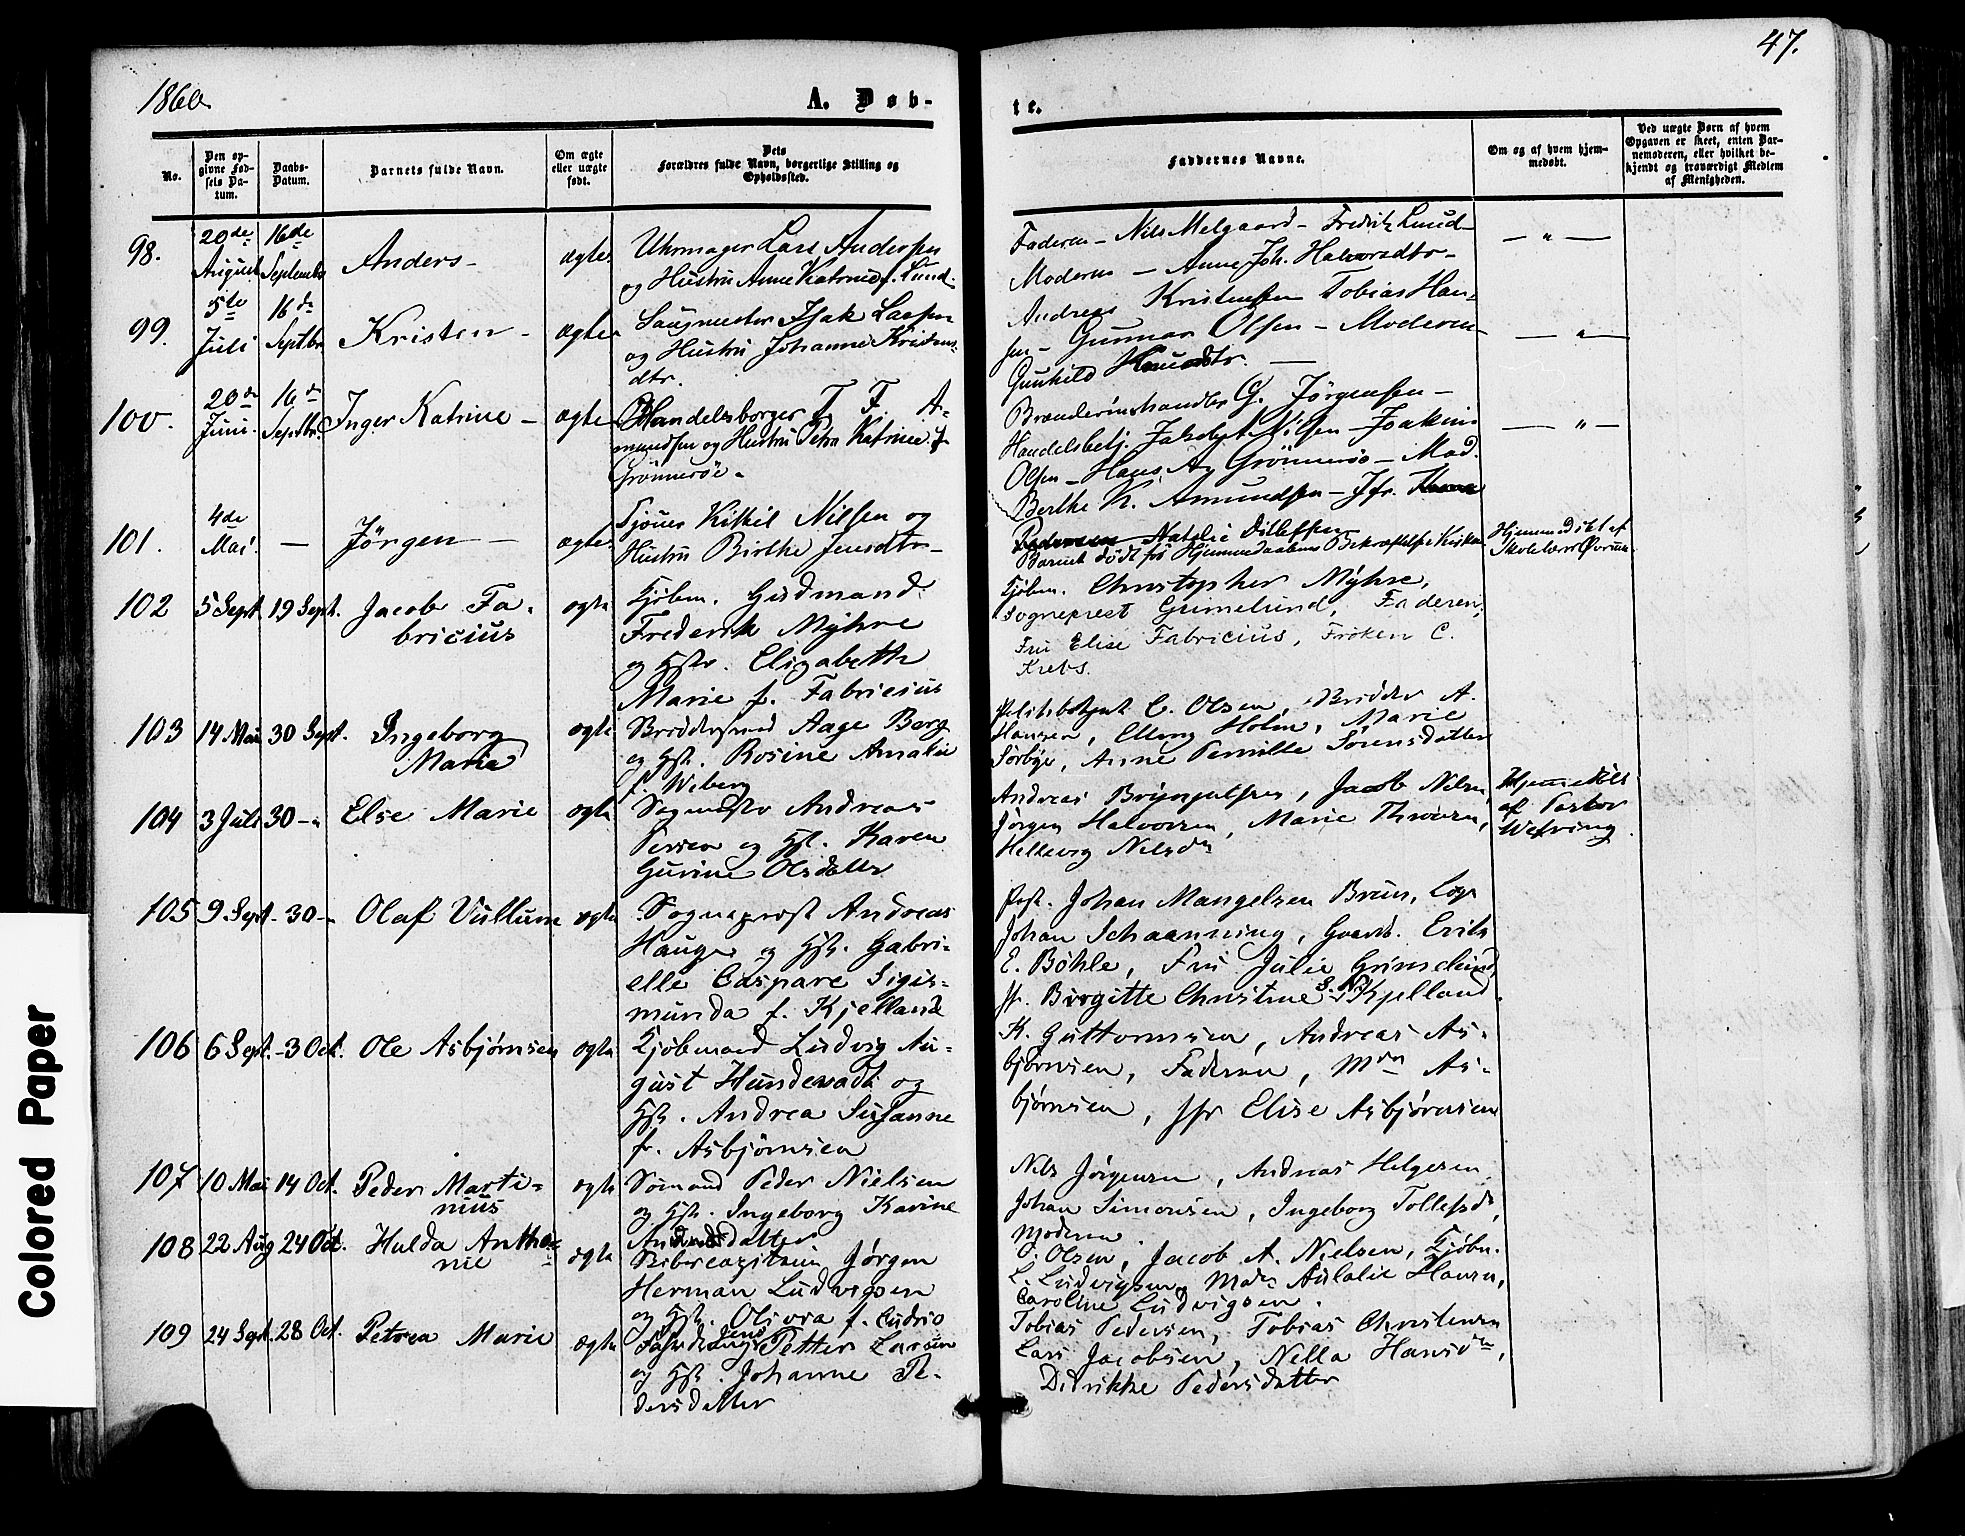 1860.
A. Døb-
te.
47.
No.
Den op-
givne Fød-
sels Da-
tum.
Daabs-
Datum.
Barnets fulde Navn.
Om ægte
eller uægte
født.
Dets
Forældres fulde Navn, borgerlige Stilling og
Opholdssted.
Faddernes Navne.
Om og af hvem hjem-
medøbt.
Ved uægte Børn af hvem
Opgaven er skeet, enten Bar-
nemoderen, eller hvilket be-
kjendt og troværdigt Medlem
af Menigheden.
98.
20de
August
16de
Septembr
Anders -
ægte.
Uhrmager Lars Andersen
og Hustru Anne Katrine f. Lund -
Faderen - Nils Melgaard - Fredrik Lund -
Moderen - Anne Joh. Halvordtr -
— " —
99.
5te
Juli
16de
Septbr
Kristen -
ægte
Saugmester Isak Larsen
og Hustru Johanne Kristens-
dtr.
Andreas Kristensen Tobias Han-
sen - Gunnar Olsen - Moderen -
Gunhild Knudsdtr. —
— " —
100.
20de
Juni.
16de
Septbr.
Inger Katrine -
ægte
Handelsborger T. F. A-
mundsen og Hustru Petra Katrine f.
Grønnerøe -
Brænderiinhandler G. Jörgensen -
Handelsbetj. Nilsen - Joakim
Olsen - Hans Ag Grönneröe - Mad.
Berthe K. Amundsen - Jfr.
Pedersen Natalie Ditlefsen
— " —
101.
4de
Mai.
—
Jörgen -
ægte.
Tjener Kittil Nilsen og
Hustru Birthe Jensdtr -
Barnet dödt för Hjemmedaabens Bekræftelse i Kirken
Hjemmedöbt af
Skolelærer Øvrum.
102
5 Sept.
19 Sept.
Jacob Fa-
bricius
ægte
Kjöbm. Gudmand
Frederik Myhre
og Hstr. Elizabeth
Marie f. Fabricius
Kjöbm. Christopher Myhre,
Sogneprest Grimelund, Faderen,
Fru Elise Fabricius, Frøken C.
Krebs.
103
14 Mai
30 Sept.
Ingeborg
Maria
ægte
Aage Berg
og Hst. Rosine Amalie
f. Weberg
Politibetjent C. Olsen, A.
Hansen, Ellen Holm, Marie
Sörbye, Anne Pernille Sörensdatter
104
3 Juli
30 - "
Else Marie
ægte
Andreas
Persen og Hst. Karen
Gurine Olsdatter
Andreas Brynjulfsen, Jacob Nilsen,
Jørgen Halvorsen, Marie Thorsen,
Hellevig Nilsdtr
Hjemmedöbt
af Pastor
Wefring.
105
9 Sept.
- 30 -
Olaf Vullum
ægte
Sogneprest Andreas
Hauge og Hst. Gabri-
elle Caspare Sigis-
munda f. Kjelland
Prst. Johan Mangelsen Brun, Logs
Johan Schaanning, Gaardb. Erik
E. Bøhle, Fru Julie Grimelund,
Jfr. Birgitte Christine S. N. Kjelland.
106
6 Sept.
- 3 Oct.
Ole Asbjørnsen
ægte
Kjöbmand Ludvig Au-
gust Hundevadt og
Hst. Andrea Susanne
f. Asbjørnsen
K. Guttormsen, Andreas As-
bjørnsen, Faderen, Mdm As-
bjørnsen, Jfr Elise Asbjørnsen
107
10 Mai
14 Oct.
Peder Marti-
nius
ægte
Sömand Peder Nielsen
og Hst. Ingeborg Karine
Andersdatter
Nils Jörgensen, Andreas Helgesen
Johan Simonsen, Ingeborg Tollefsdr,
Moderen.
108
22 Aug
24 Oct.
Hulda Antho-
nie
ægte
Jørgen
Herman Ludvigsen
og Hst. Olivia f. Cudrio
Olsen, Jacob A. Nielsen, Kjøbm.
L. Ludvigsen, Mdm Aulalie Hansen,
Caroline Ludvigsen.
109
24 Sept.
28 Oct.
Petrea Marie
ægte
Jens
Petter Larsen
og Hst. Johanne Pe-
dersdatter
Tobias Pedersen, Tobias Christensen
Lars Jacobsen, Nella Hansdr,
Didrikke Pedersdatter
Colored Paper